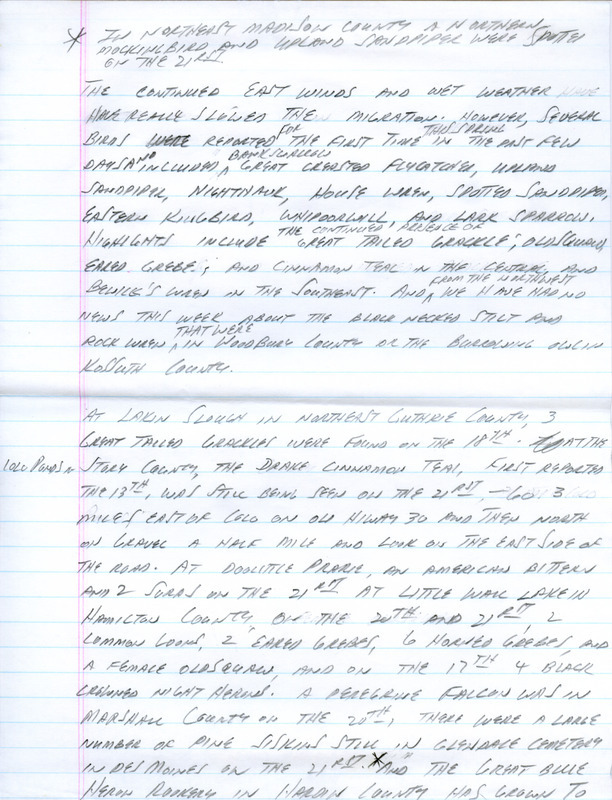 * IN NORTHEAST MADISON COUNTY A NORTHERN
MOCKINGBIRD, AND UPLAND SANDPIPER WERE SPOTTED
ON THE 21RST
THE CONTINUED EAST WINDS AND WET WEATHER HAVE
HAVE REALLY SLOWED THE MIGRATION. HOWEVER, SEVERAL
BIRDS WERE REPORTED FOR THE FIRST TIME THIS SPRING IN THE PAST FEW
DAYS AND INCLUDED, BANK SWALLOW GREAT CREASTED FLYCATCHER, UPLAND
SANDPIPER, NIGHTHAWK, HOUSE WREN, SPOTTED SANDPIPER,
EASTERN KINGBIRD, WHIPOORWILL, AND LARK SPARROW.
HIGHLIGHTS INCLUDE THE CONTINUED PRESENCE OF GREAT TAILED GRACKLE; OLDSQUAW,
EARED GREBE; AND CINNAMON TEAL IN THE CENTRAL AND
BEWICK'S WREN IN THE SOUTHEAST. AND, FROM THE NORTHWEST WE HAVE HAD NO
NEWS THIS WEEK ABOUT THE BLACK NECKED STILT AND
ROCK WREN THAT WERE IN WOODBURY COUNTY OR THE BURROWING OWL IN
KOSSUTH COUNTY.
AT LAKIN SLOUGH IN NORTHEAST GUTHRIE COUNTY, 3
GREAT TAILED GRACKLES WERE FOUND ON THE 18TH. AT THE
COLO PONDS IN STORY COUNTY, THE DRAKE CINNAMON TEAL, FIRST REPORTED
THE 13TH, WAS STILL BEING SEEN ON THE 21RST, - GO 3
MILES EAST OF COLO ON OLD HIWAY 30 AND THEN NORTH
ON GRAVEL A HALF MILE AND LOOK ON THE EAST SIDE OF
THE ROAD. AT DOOLITTLE PRARIE, AN AMERICAN BITTERN
AND 2 SORAS ON THE 21RST AT LITTLE WALL LAKE IN
HAMILTON COUNTY, ON THE 20TH AND 21RST, 2
COMMON LOONS, 2 EARED GREBES, 6 HORNED GREBES, AND
A FEMALE OLDSQUAW, AND ON THE 17TH 4 BLACK
CROWNED NIGHT HERONS. A PEREGRINE FALCON WAS IN
MARSHALL COUNTY ON THE 20TH, THERE WERE A LARGE
NUMBER OF PINE SISKINS STILL IN GLENDALE CEMETERY
IN DES MOINES ON THE 21RST. * AND THE GREAT BLUE
HERON ROOKERY IN HARDIN COUNTY HAS GROWN TO